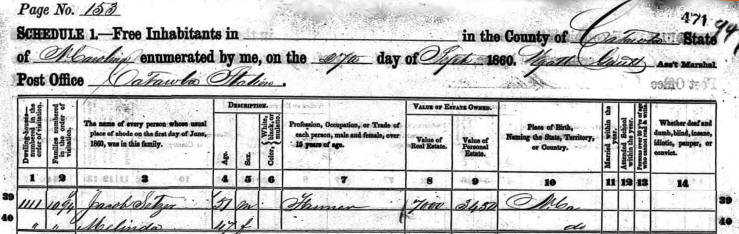 Page No. 153
471
SCHEDULE 1.—Free Inhabitants in in the County of Catawba State
of N. Carolina enumerated by me, on the 27th day of Sept 1860. Ass't Marshal.
Post Office Catawba Station
Dwelling-houses—numbered in the order of visitation.
Families numbered in the order of visitation.
The name of every person whose usual place of abode on the first day of June, 1860, was in this family.
DESCRIPTION.
Age.
Sex.
Color, White, black, or mulatto.
Profession, Occupation, or Trade of each person, male and female, over 15 years of age.
VALUE OF ESTATE OWNED.
Value of Real Estate.
Value of Personal Estate.
Place of Birth, Naming the State, Territory, or Country.
Married within the year.
Attended School within the year.
Persons over 20 y'rs of age who cannot read & write.
Whether deaf and dumb, blind, insane, idiotic, pauper, or convict.
1 2 3 4 5 6 7 8 9 10 11 12 13 14
39 1111 Jacob Setzer 51 m Farmer 7000 3450 N. Ca 39
40 " " Melinda 47 f do 40